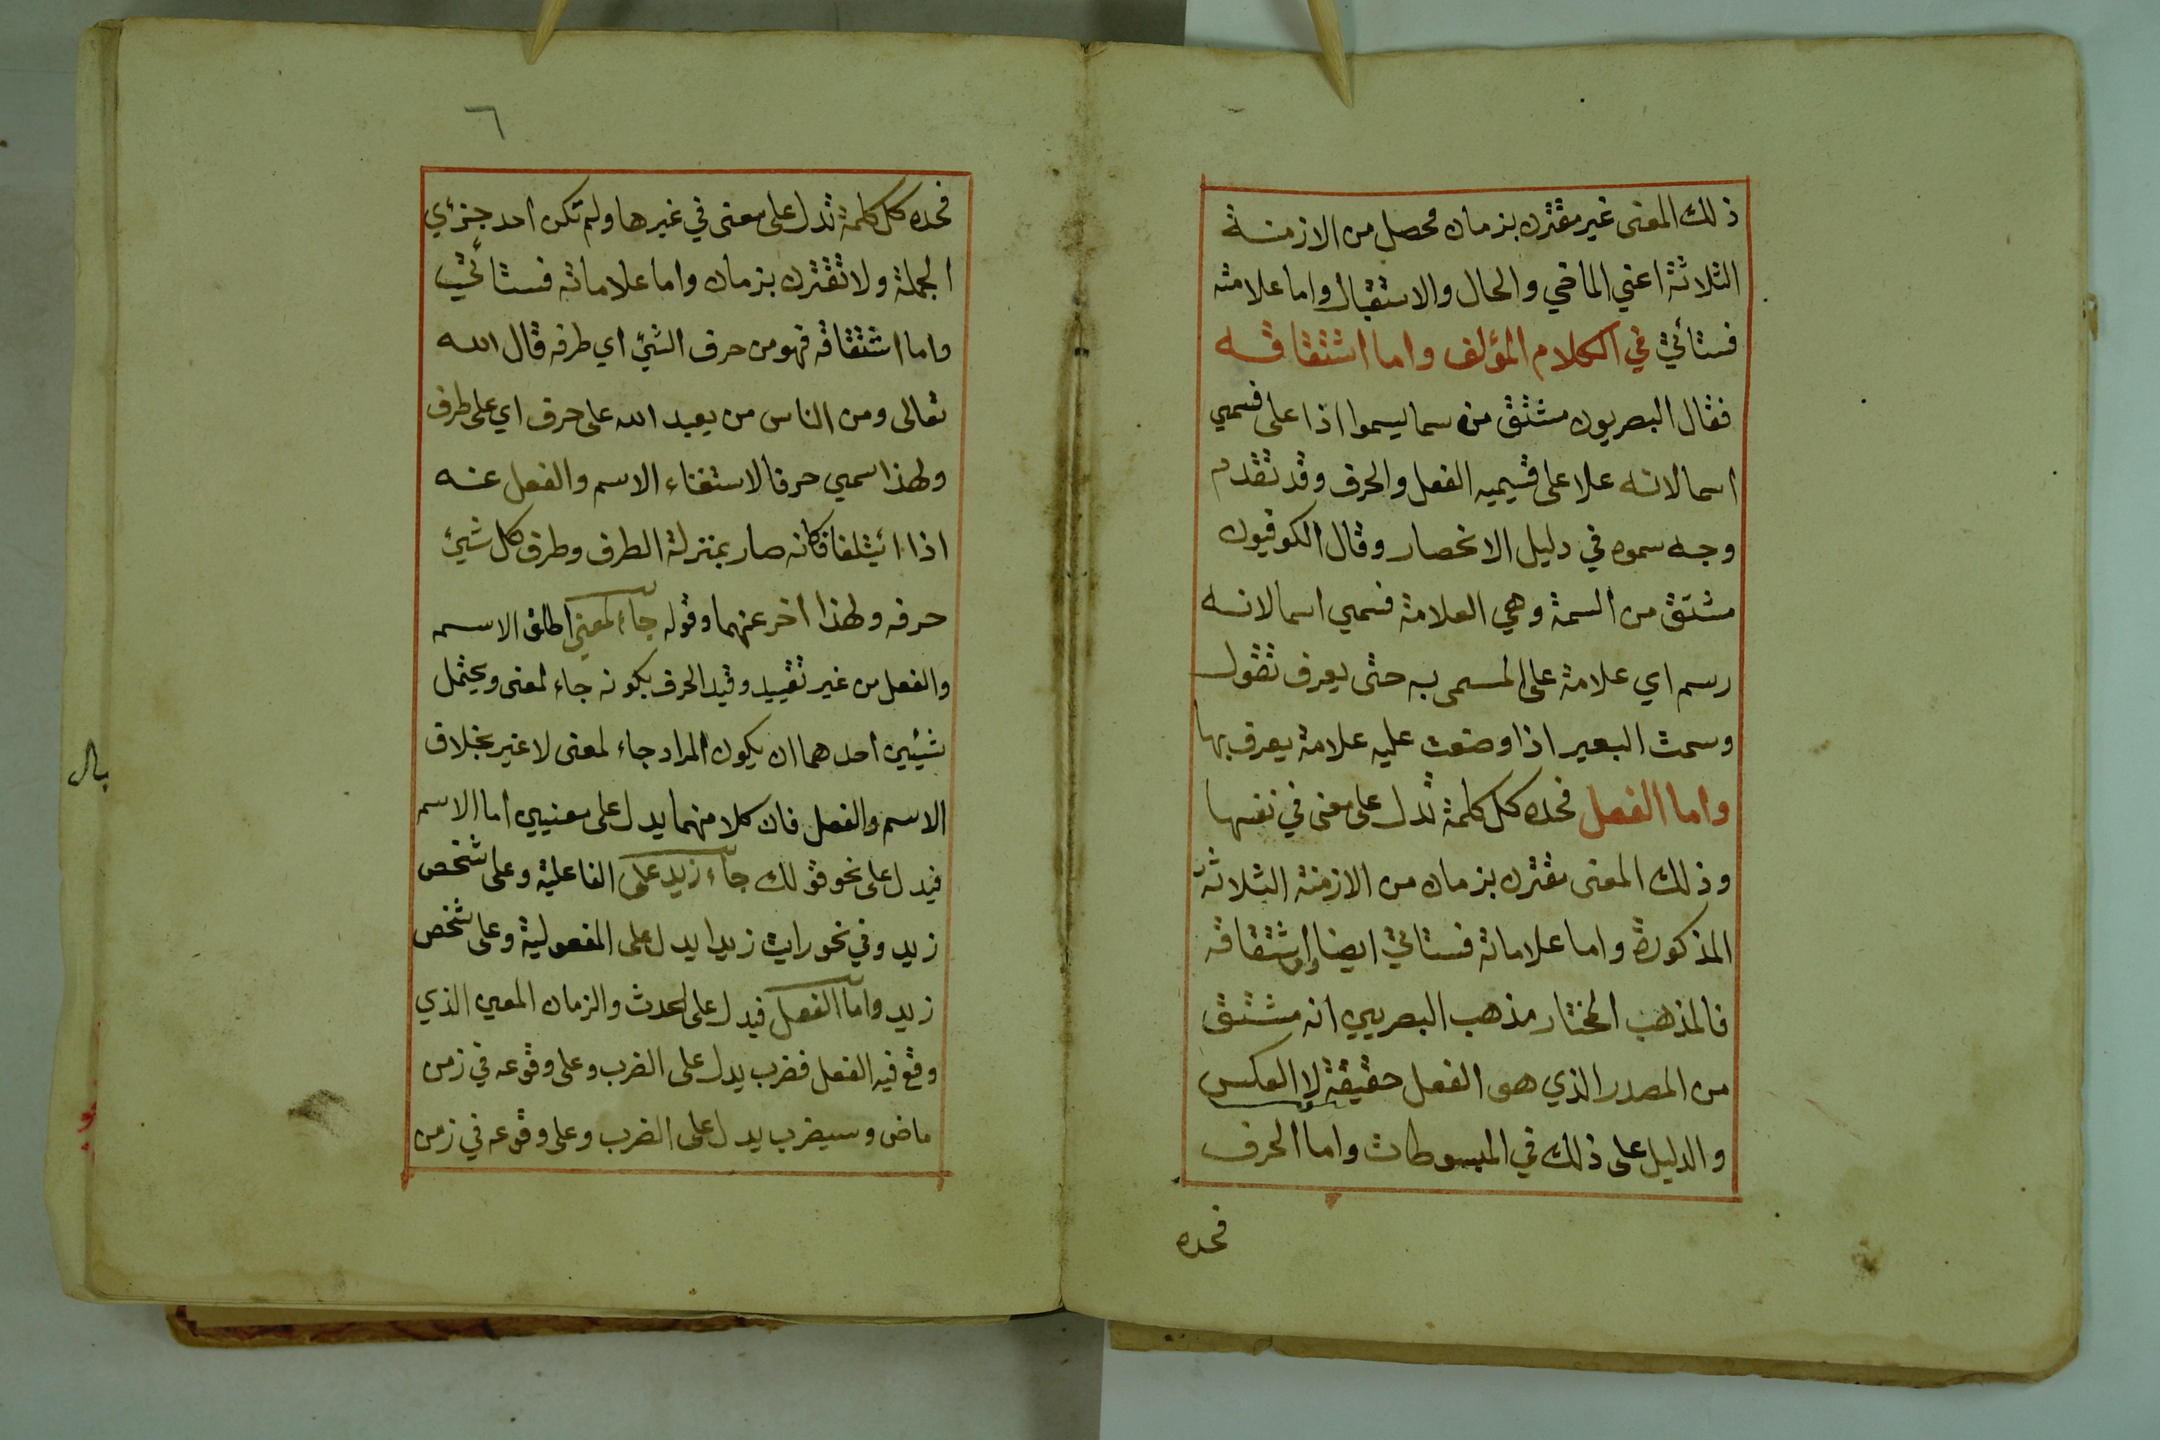 ذلك المعنى غير مقترن بزمان محصل من الازمنة
الثلاثة اعني الماضي والحال والاستقبال واما علامته
فستأتي في الكلام المؤلف واما اشتقاقه
فقال البصريون مشتق من سما يسموا اذا على فسمي
اسما لانه علا على قسيميه الفعل والحرف وقد تقدم
وجه سموه في دليل الانحصار وقال الكوفيون
مشتق من السمة وهي العلامة فسمي اسما لانه
رسم اي علامة على المسمى به حتى يعرف تقول
وسمت البعير اذا وضعت عليه علامة يعرف بها
واما الفعل فحده كل كلمة تدل على معنى في نفسها
وذلك المعنى مقترن بزمان من الازمنة الثلاثة
المذكورة واما علاماته فستاتي ايضا واما اشتقاقه
فالمذهب المختار مذهب البصريين انه مشتق
من المصدر الذي هو الفعل حقيقة لا العكس
والدليل على ذلك في المبسوطات واما الحرف
فحده
٦
فحده كل كلمة تدل على معنى في غيرها ولم تكن احد جزئي
الجملة ولا تقترن بزمان واما علاماته فستأتي
واما اشتقاقه فهو من حرف الشئ اي طرفه قال الله
تعالى ومن الناس من يعبد الله على حرف اي على طرف
ولهذا سمي حرفا لاستغناء الاسم والفعل عنه
اذا ائيتلفا فكانه صار بمنزلة الطرف وطرف كل شيئ
حرفه ولهذا اخر عنهما وقوله جاء لمعنى اطلق الاسم
والفعل من غير تقييد وقيد الحرف بكونه جاء لمعنى ويحتمل
شيئين احدهما ان يكون المراد جاء لمعنى لا غير بخلاف
الاسم والفعل فان كلا منهما يدل على معنيين اما الاسم
فيدل على نحو قولك جاء زيد على الفاعلية وعلى شخص
زيد وفي نحو رايت زيدا يدل على المفعولية وعلى شخص
زيد واما الفعل فيدل على الحدث والزمان المعين الذي
وقع فيه الفعل فضرب يدل على الضرب وعلى وقوعه في زمن
ماض وسيضرب يدل على الضرب وعلى وقوعه في زمن